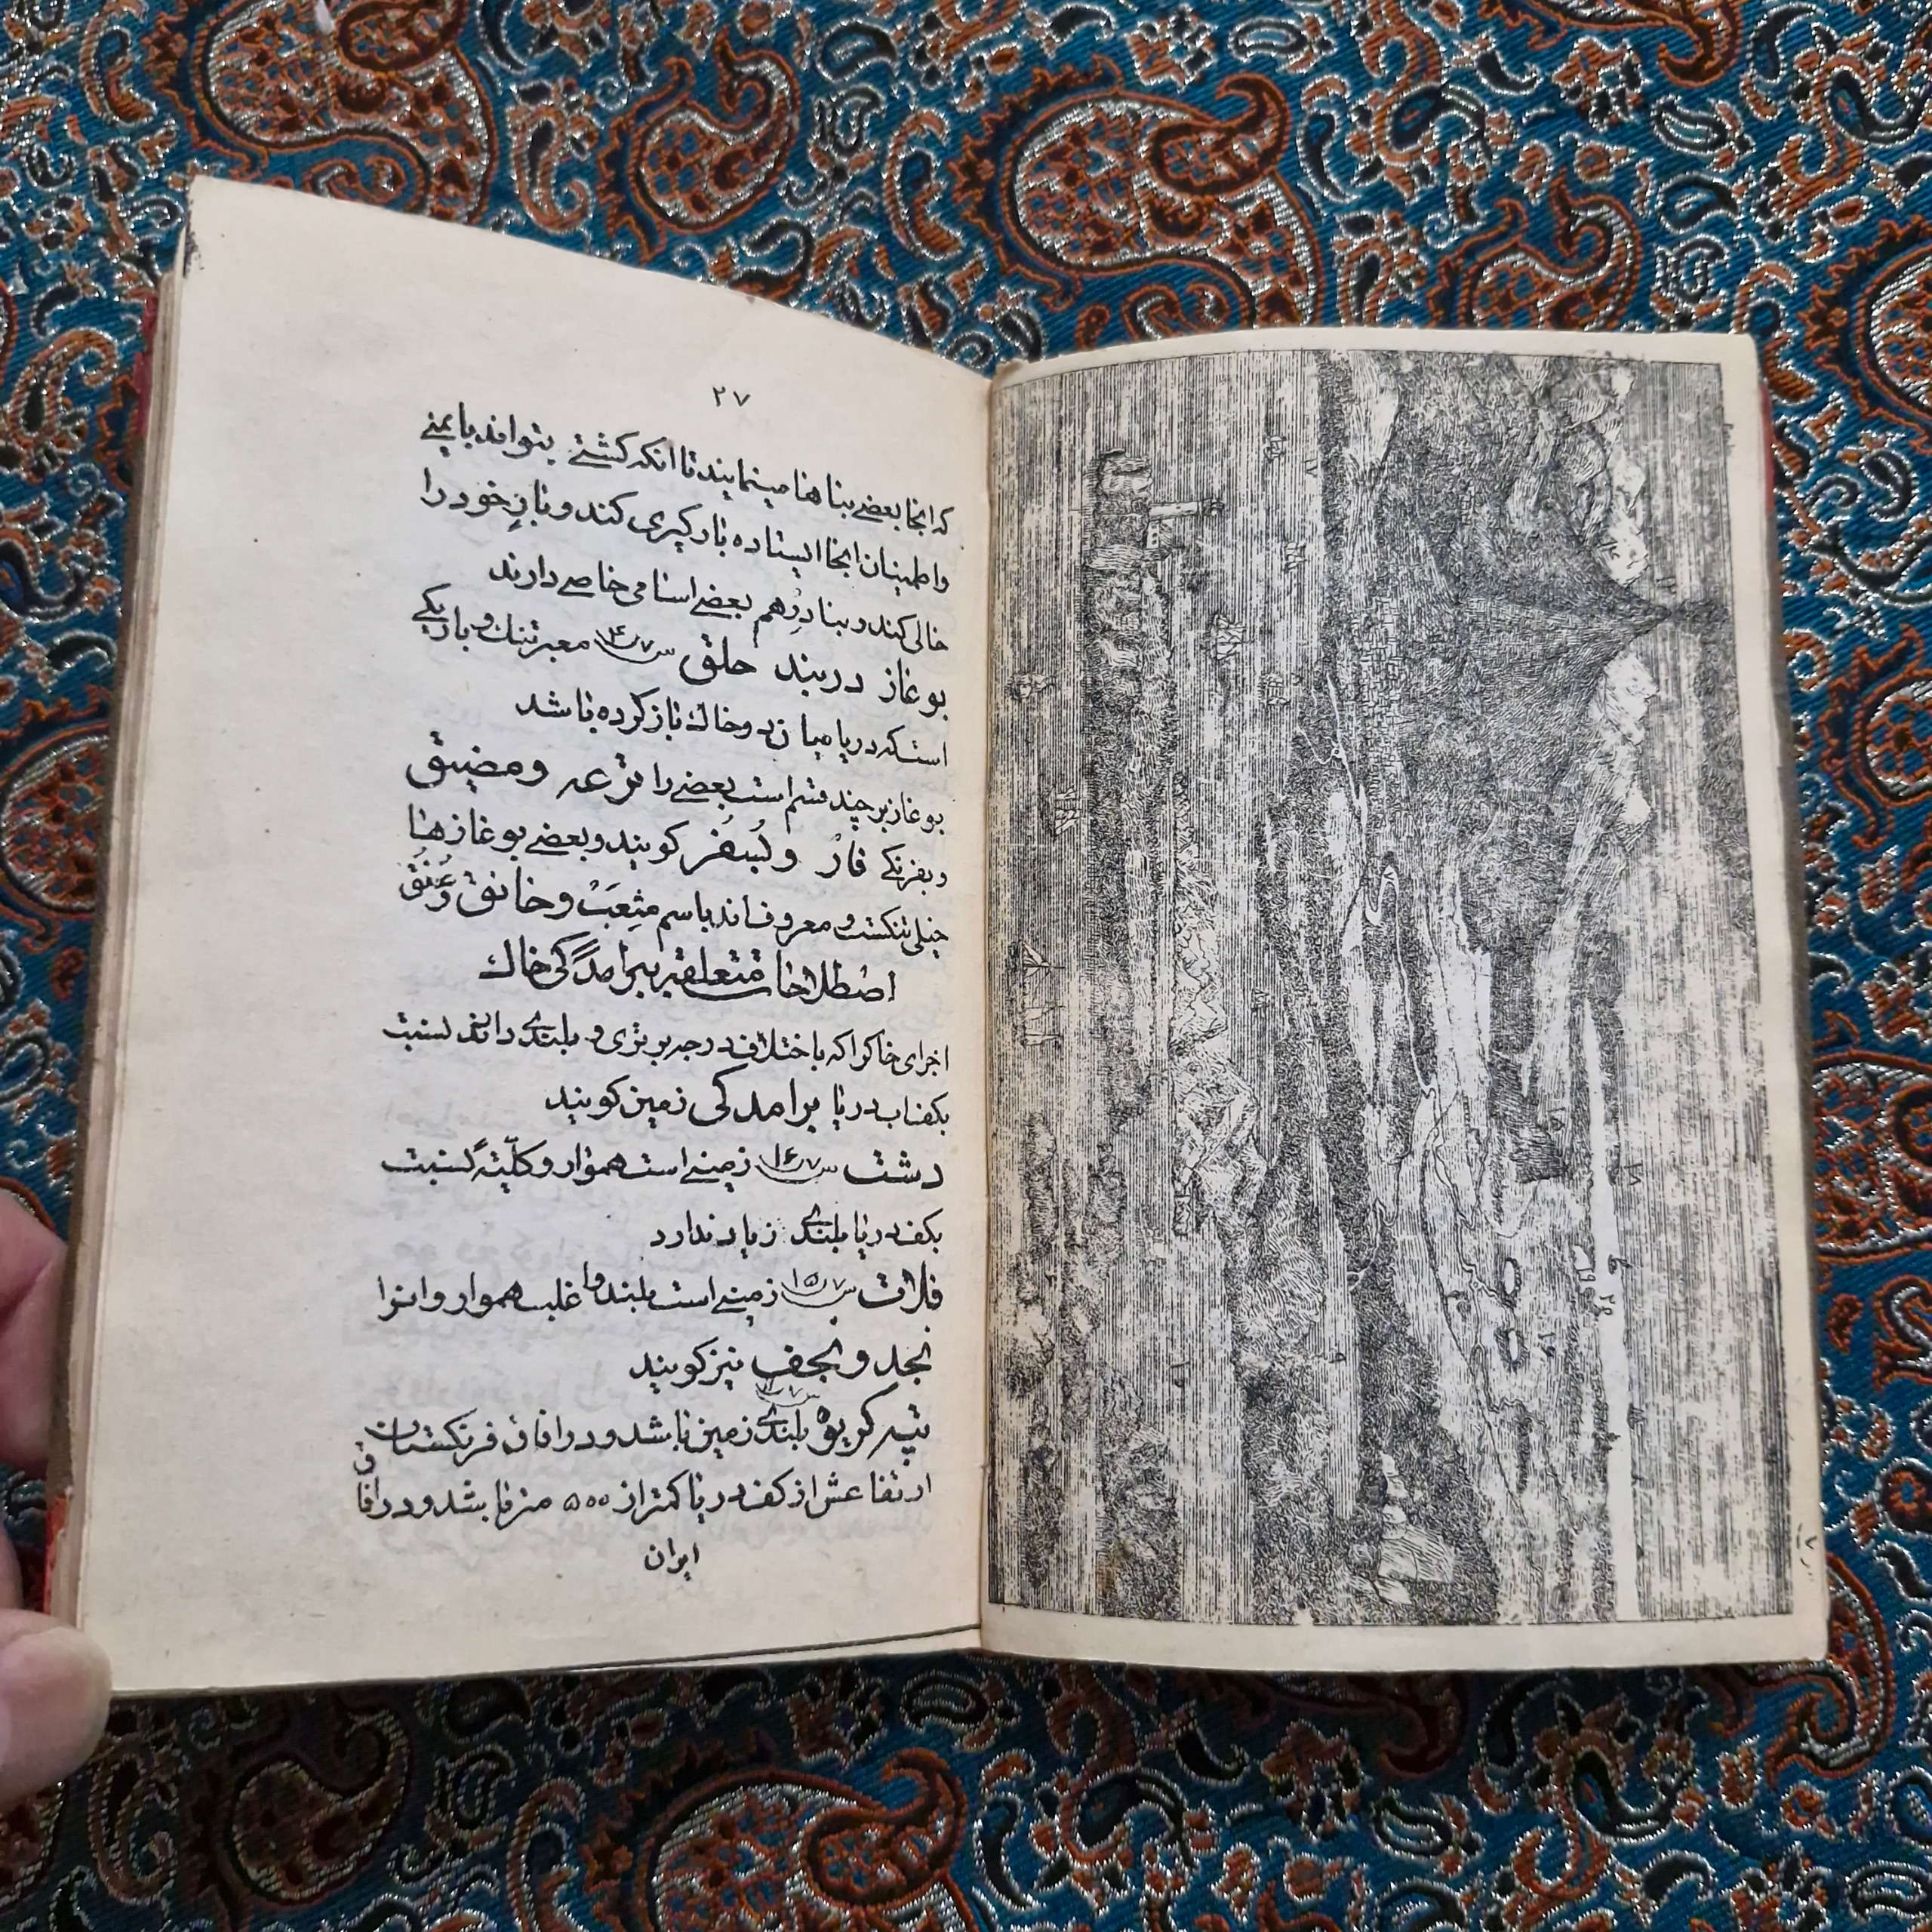 ۲۷
که انجا بعضی بناها مینمایند تا انکه کشتی بتواند بایمنی
و اطمینان انجا ایستاده بارگیری کند و بار خود را
خالی کند و بنادر هم بعضی اسامی خاصی دارند
بوغاز دربند حلق معبر تنک و باریکی
است که دریا میان دو خاک باز کرده باشد
بوغاز بر چند قسم است بعضی را ترعه و مضیق
و بفرنکی فار و بُسفُر کویند و بعضی بوغازها
خیلی تنکست و معروف اند باسم مثعَب و خانق و عُنُق
اصطلاحات متعلقه ببرامدگی خاک
اجزای خاکرا که باختلاف درجه برتری و بلندی دارند نسبت
بکف اب دریا برامدکی زمین کویند
دشت س۷ر۱۴ زمینی است هموار و کلیّةً نسبت
بکف دریا بلندی زیاد ندارد
فلات س۷ر۱۵ زمینی است بلند و اغلب هموار و انرا
نجد و نجف نیز کویند
تپه کریوه بلندی زمین باشد و در افاق فرنکستان
ارتفاعش از کف دریا کمتر از ۵۰۰ متر باشد و در افاق
ایران